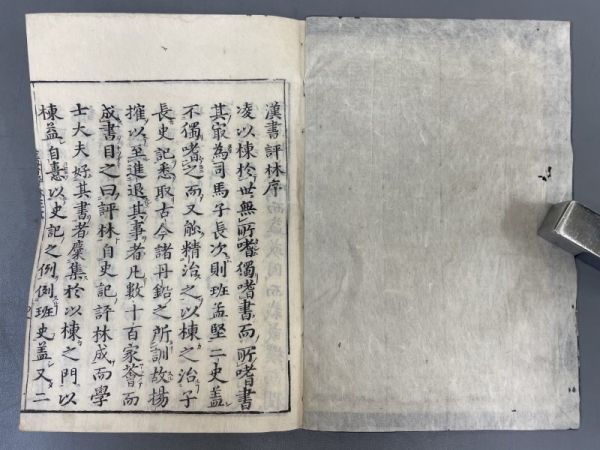 漢書評林序
凌以棟於世無所嗜獨嗜書而所嗜書
其冣為司馬子長次則班孟堅二史盖
不獨嗜之而又能精治之以棟之治子
長史記悉取古今諸丹鉛之所訓故揚
搉以至進退其事者凡數十百家薈而
成書目之曰評林自史記評林成而學
士大夫好其書者麋集於以棟之門以
棟益自憙以史記之例例班史盖又二